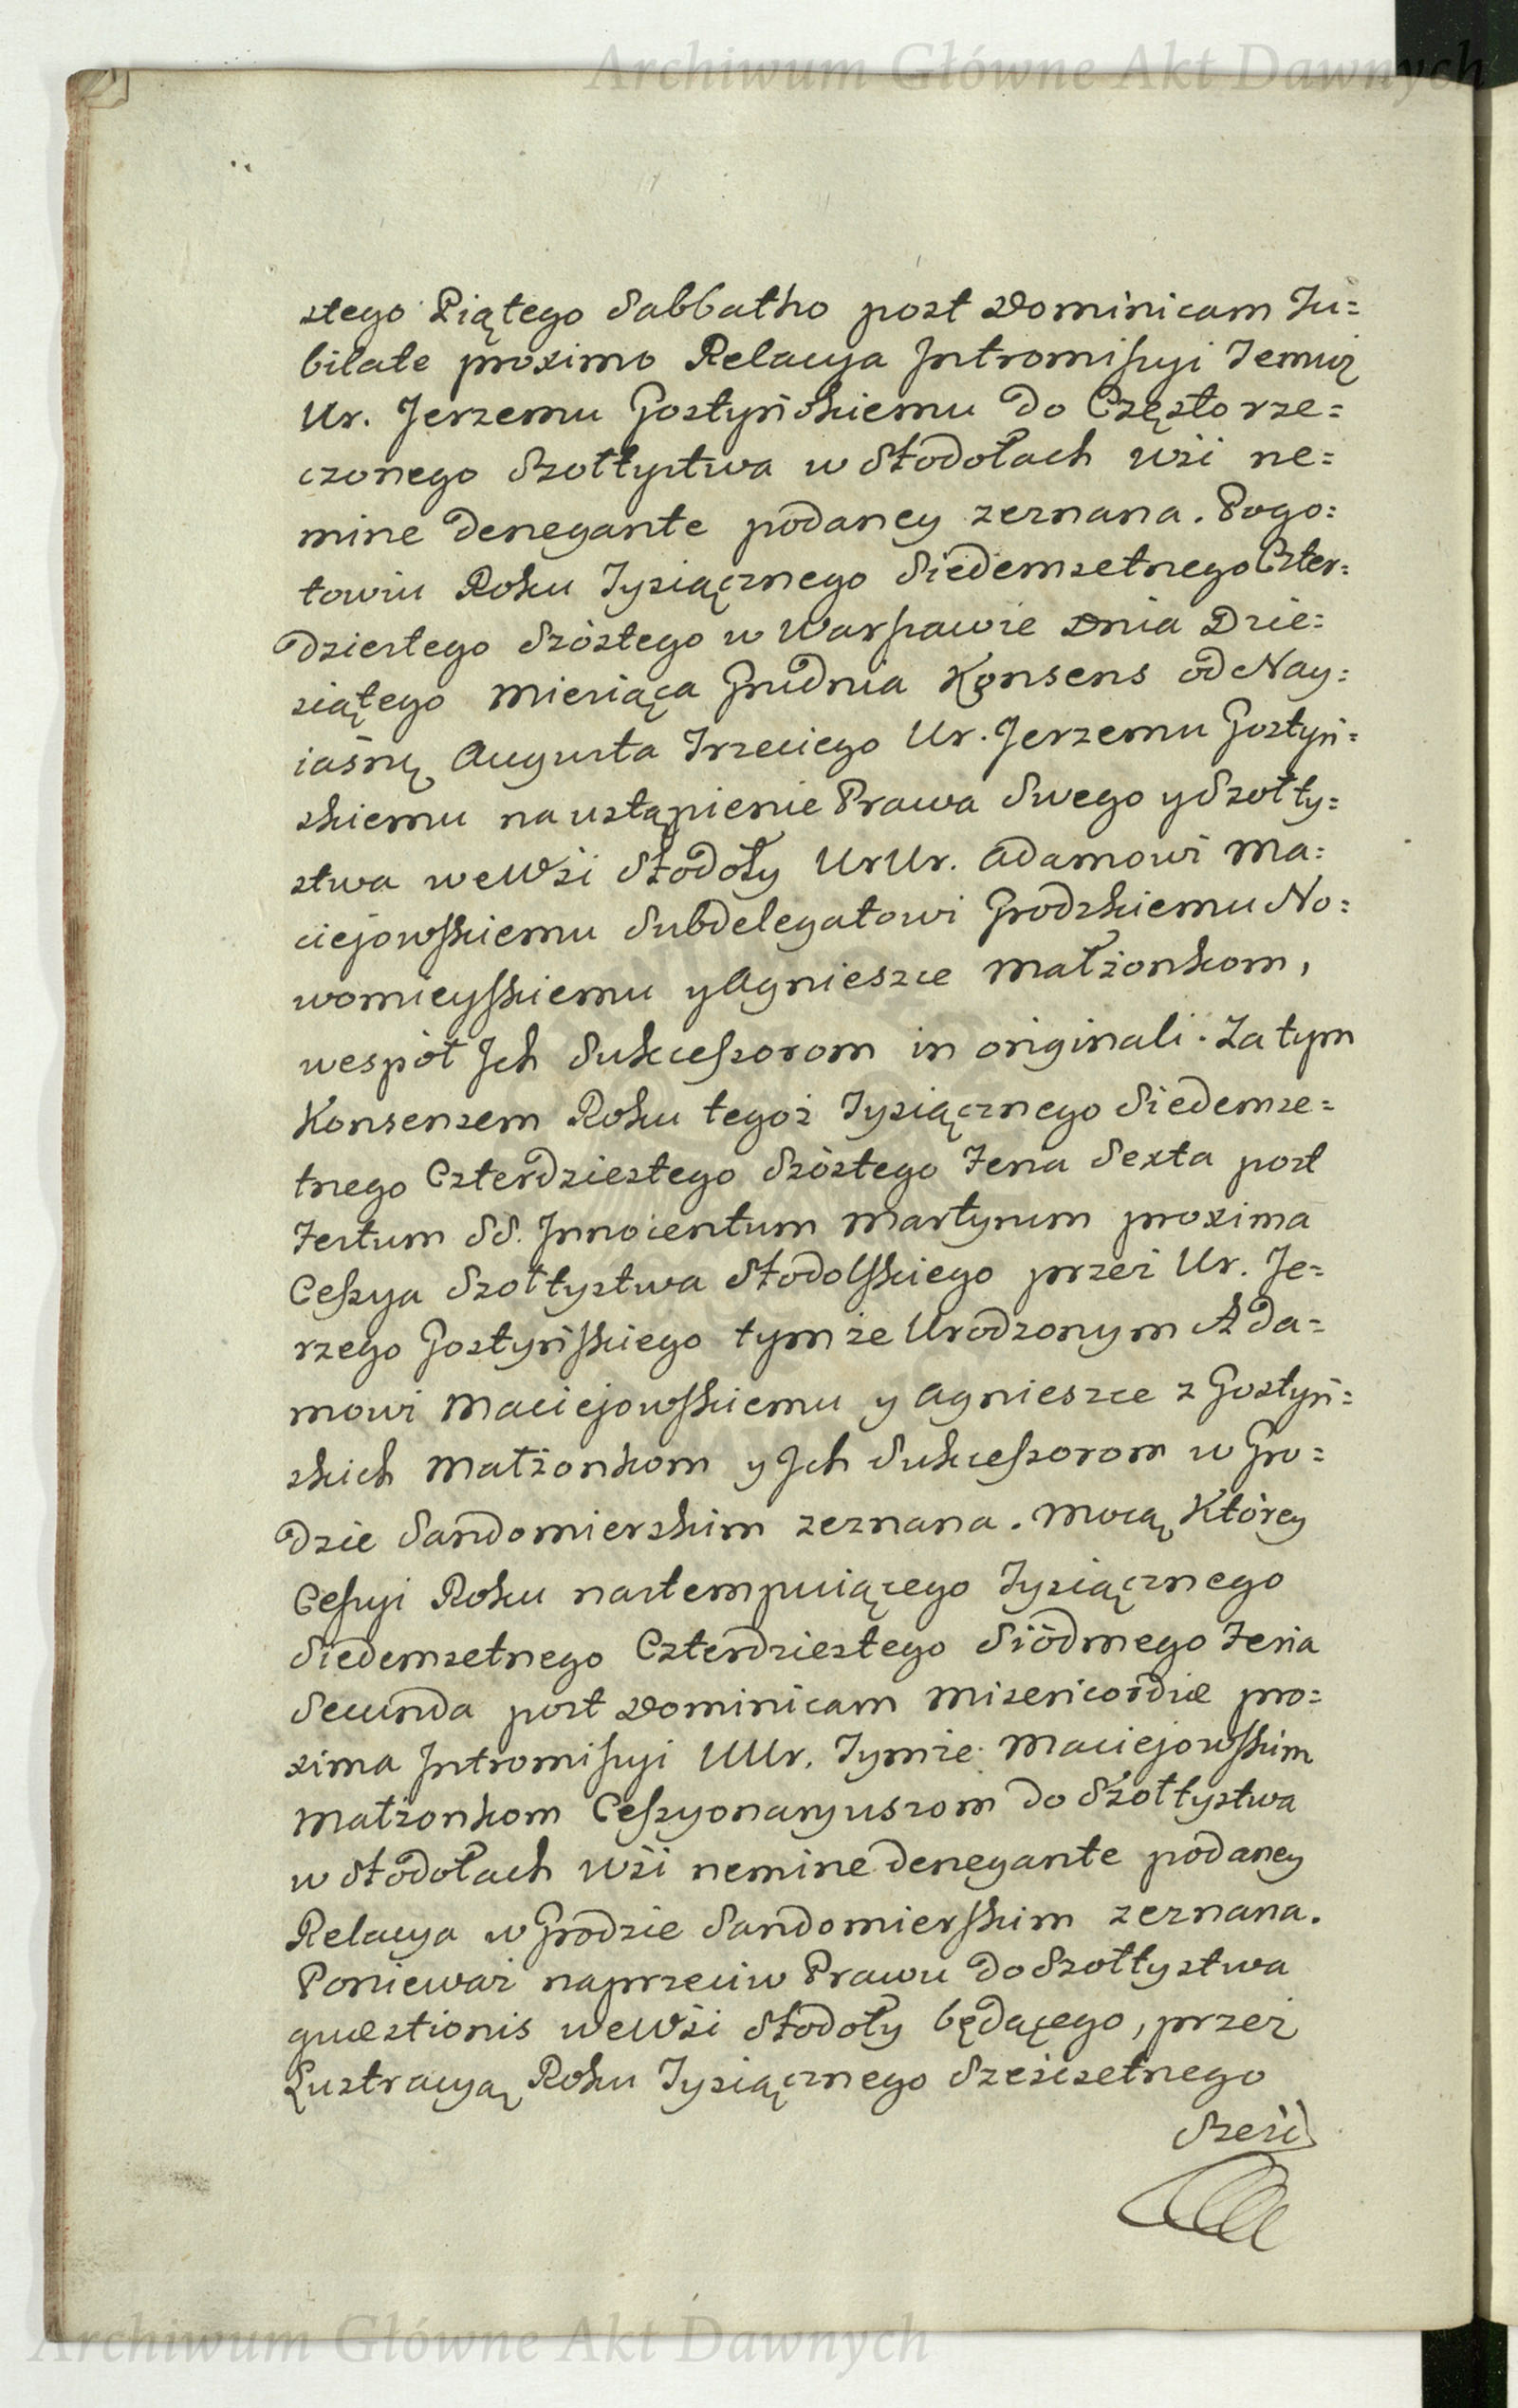 Archiwum Główne Akt Dawnych
stego Piątego Sabbatho post Dominicam Ju=
bilate proximo Relacya Intromissyi Temuż
Ur. Jerzemu Gostyńskiemu do Często rze=
czonego Szołtystwa w Stodołach wśi ne=
mine denegante podaney zeznana. Pogo=
towiu Roku Tysiącznego Siedemsetnego Czter=
dziestego Szóstego w Warszawie Dnia Dzie=
siątego Miesiąca Grudnia Konsens od Nay=
iaśnię Augusta Trzeciego Ur. Jerzemu Gostyń=
skiemu na ustąpienie Prawa Swego y Szołty=
stwa we Wśi Stodoły UrUr. Adamowi Ma=
ciejowskiemu Subdelegatowi Grodzkiemu No=
womieyskiemu y Agnieszce Małżonkom,
wespół Ich Sukcessorom in originali. Za tym
Konsensem Roku tegoż Tysiącznego Siedemse=
tnego Czterdziestego Szóstego Feria Sexta post
Festum SS. Innocentum Martyrum proxima
Cessya Szołtystwa Stodolskiego przez Ur. Je=
rzego Gostyńskiego tymże Urodzonym Ada=
mowi Maciejowskiemu y Agnieszce z Gostyń=
skich Małżonkom y Ich Sukcessorom w Gro=
dzie Sandomierskim zeznana. Mocą Którey
Cessyi Roku nastempuiącego Tysiącznego
Siedemsetnego Czterdziestego Siódmego Feria
Secunda post Dominicam Misericordiæ pro=
xima Intromissyi UUr. Tymże Maciejowskim
Małżonkom Cessyonaryuszom do Szołtystwa
w Stodołach Wśi nemine denegante podaney
Relacya w Grodzie Sandomierskim zeznana.
Ponieważ naprzeciw Prawu do Szołtystwa
quæstionis we Wśi Stodoły będącego, przez
Lustracyą Roku Tysiącznego Sześćsetnego
Sześć
Archiwum Główne Akt Dawnych